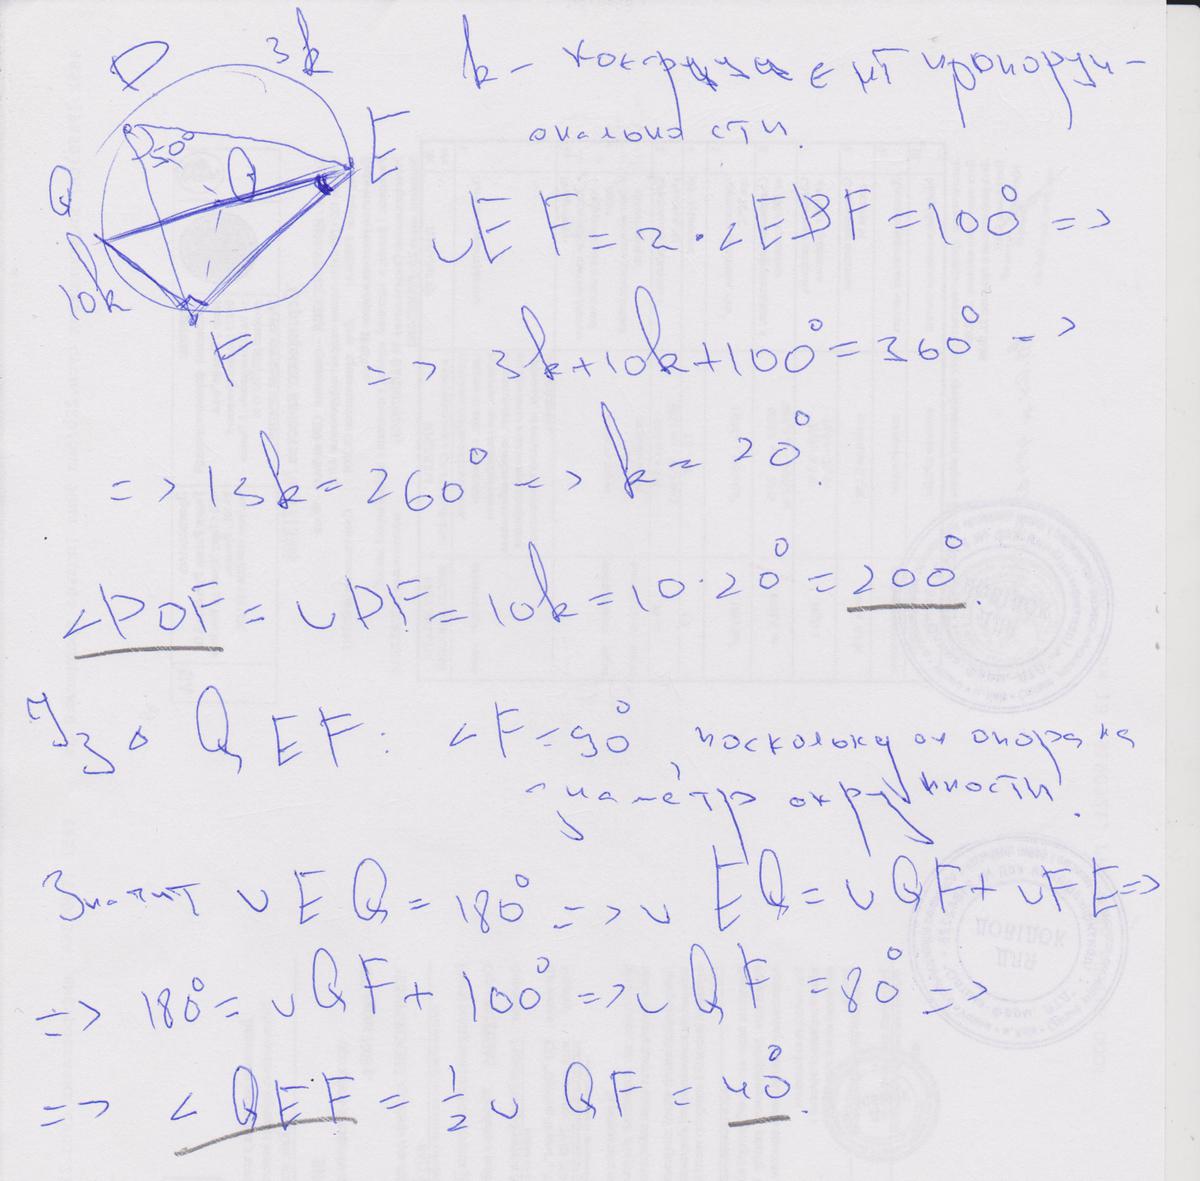 D 3k
k - коэффициент пропорци-
ональности.
50°
E
Q
O
10k
F
∪EF = 2·∠EDF = 100° =>
=> 3k+10k+100° = 360° =>
=> 13k = 260° => k = 20°.
∠DOF = ∪DF = 10k = 10·20° = 200°.
Из △ QEF: ∠F = 90°, поскольку он опора на
диаметр окружности.
Значит ∪EQ = 180° => ∪EQ = ∪QF + ∪FE =>
=> 180° = ∪QF + 100° => ∪QF = 80° =>
=> ∠QEF = 1/2 ∪ QF = 40°.
ДОВІДОК
ДЛЯ